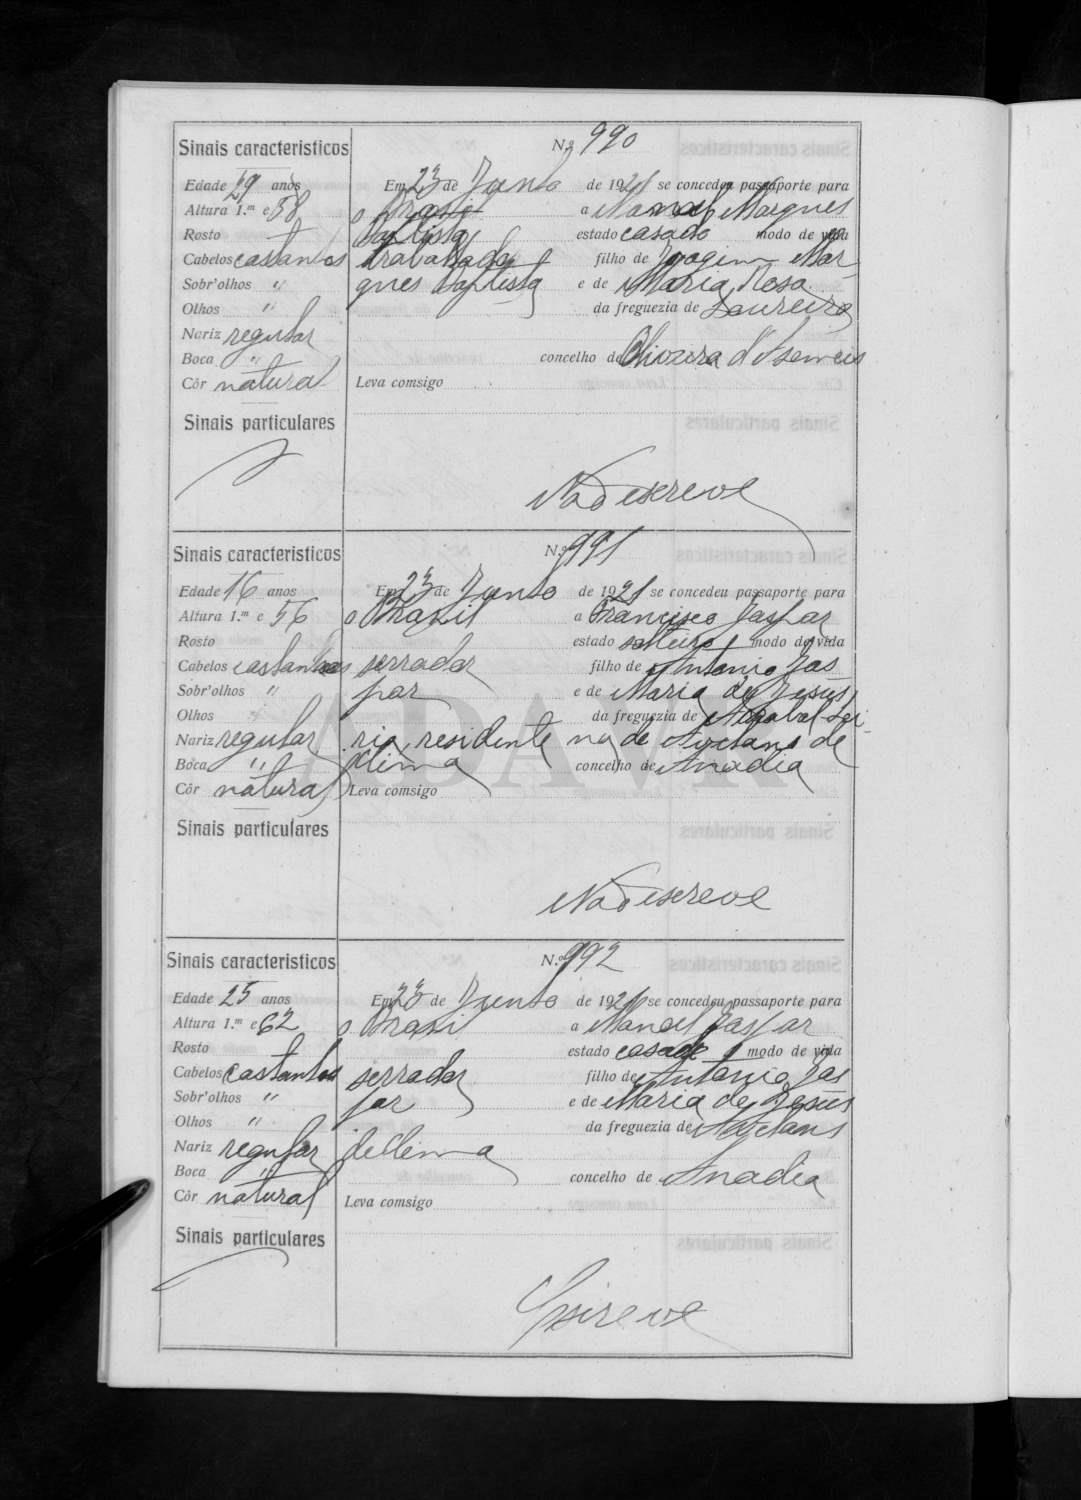 Sinais caracteristicos
Nº 990
Edade 29 anos
Em 23 de Junho de 1921 se concedeu passaporte para
Altura 1.m e 58
o Brasil a Manuel Marques
Rosto
Baptista estado casado modo de vida
Cabelos castanhos
trabalhador filho de Joaquim Mar
Sobr'olhos "
ques Baptista e de Maria Rosa
Olhos "
da freguezia de Loureiro
Nariz regular
Boca "
concelho de Oliveira d'Asemeis
Côr natural
Leva comsigo
Sinais particulares
Não escreve
Sinais caracteristicos
N.º 991
Edade 16 anos
Em 23 de Junho de 1921 se concedeu passaporte para
Altura 1.m e 56
o Brazil a Francisco Gaspar
Rosto
estado solteiro modo de vida
Cabelos castanhos
serrador filho de Antonio Gas
Sobr'olhos "
par e de Maria de Jesus
Olhos "
da freguezia de
Nariz regular
ria, residente na de Avelans de
Boca "
Cima concelho de Anadia
Côr natural
Leva comsigo
Sinais particulares
Não escreve
Sinais caracteristicos
N.º 992
Edade 25 anos
Em 23 de Junho de 1921 se concedeu passaporte para
Altura 1.m e 62
o Brasil a Manoel Gaspar
Rosto
estado casado modo de vida
Cabelos castanhos
serrador filho de Antonio Gas
Sobr'olhos "
par e de Maria de Jesus
Olhos "
da freguezia de Avelans
Nariz regular
de Cima
Boca "
concelho de Anadia
Côr natural
Leva comsigo
Sinais particulares
Escreve
ADAVR